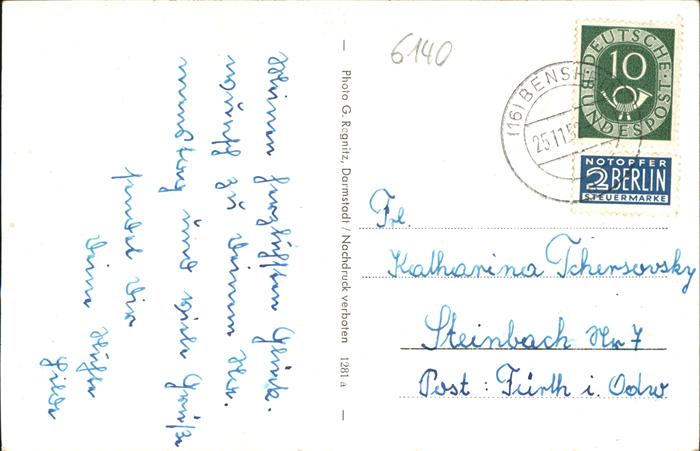 Meinen herzlichsten Glück-
wunsch zu Deinem Na-
menstag und viele Grüße
sendet Dir
Deine
Hilde
Photo G. Regnitz, Darmstadt / Nachdruck verboten 1281 a
6140
DEUTSCHE
10
BUNDESPOST
(16) BENSH
25.11.5
NOTOPFER
2 BERLIN
STEUERMARKE
Frl.
Katharina Tchersovsky
Steinbach Nr 7
Post: Fürth i. Odw